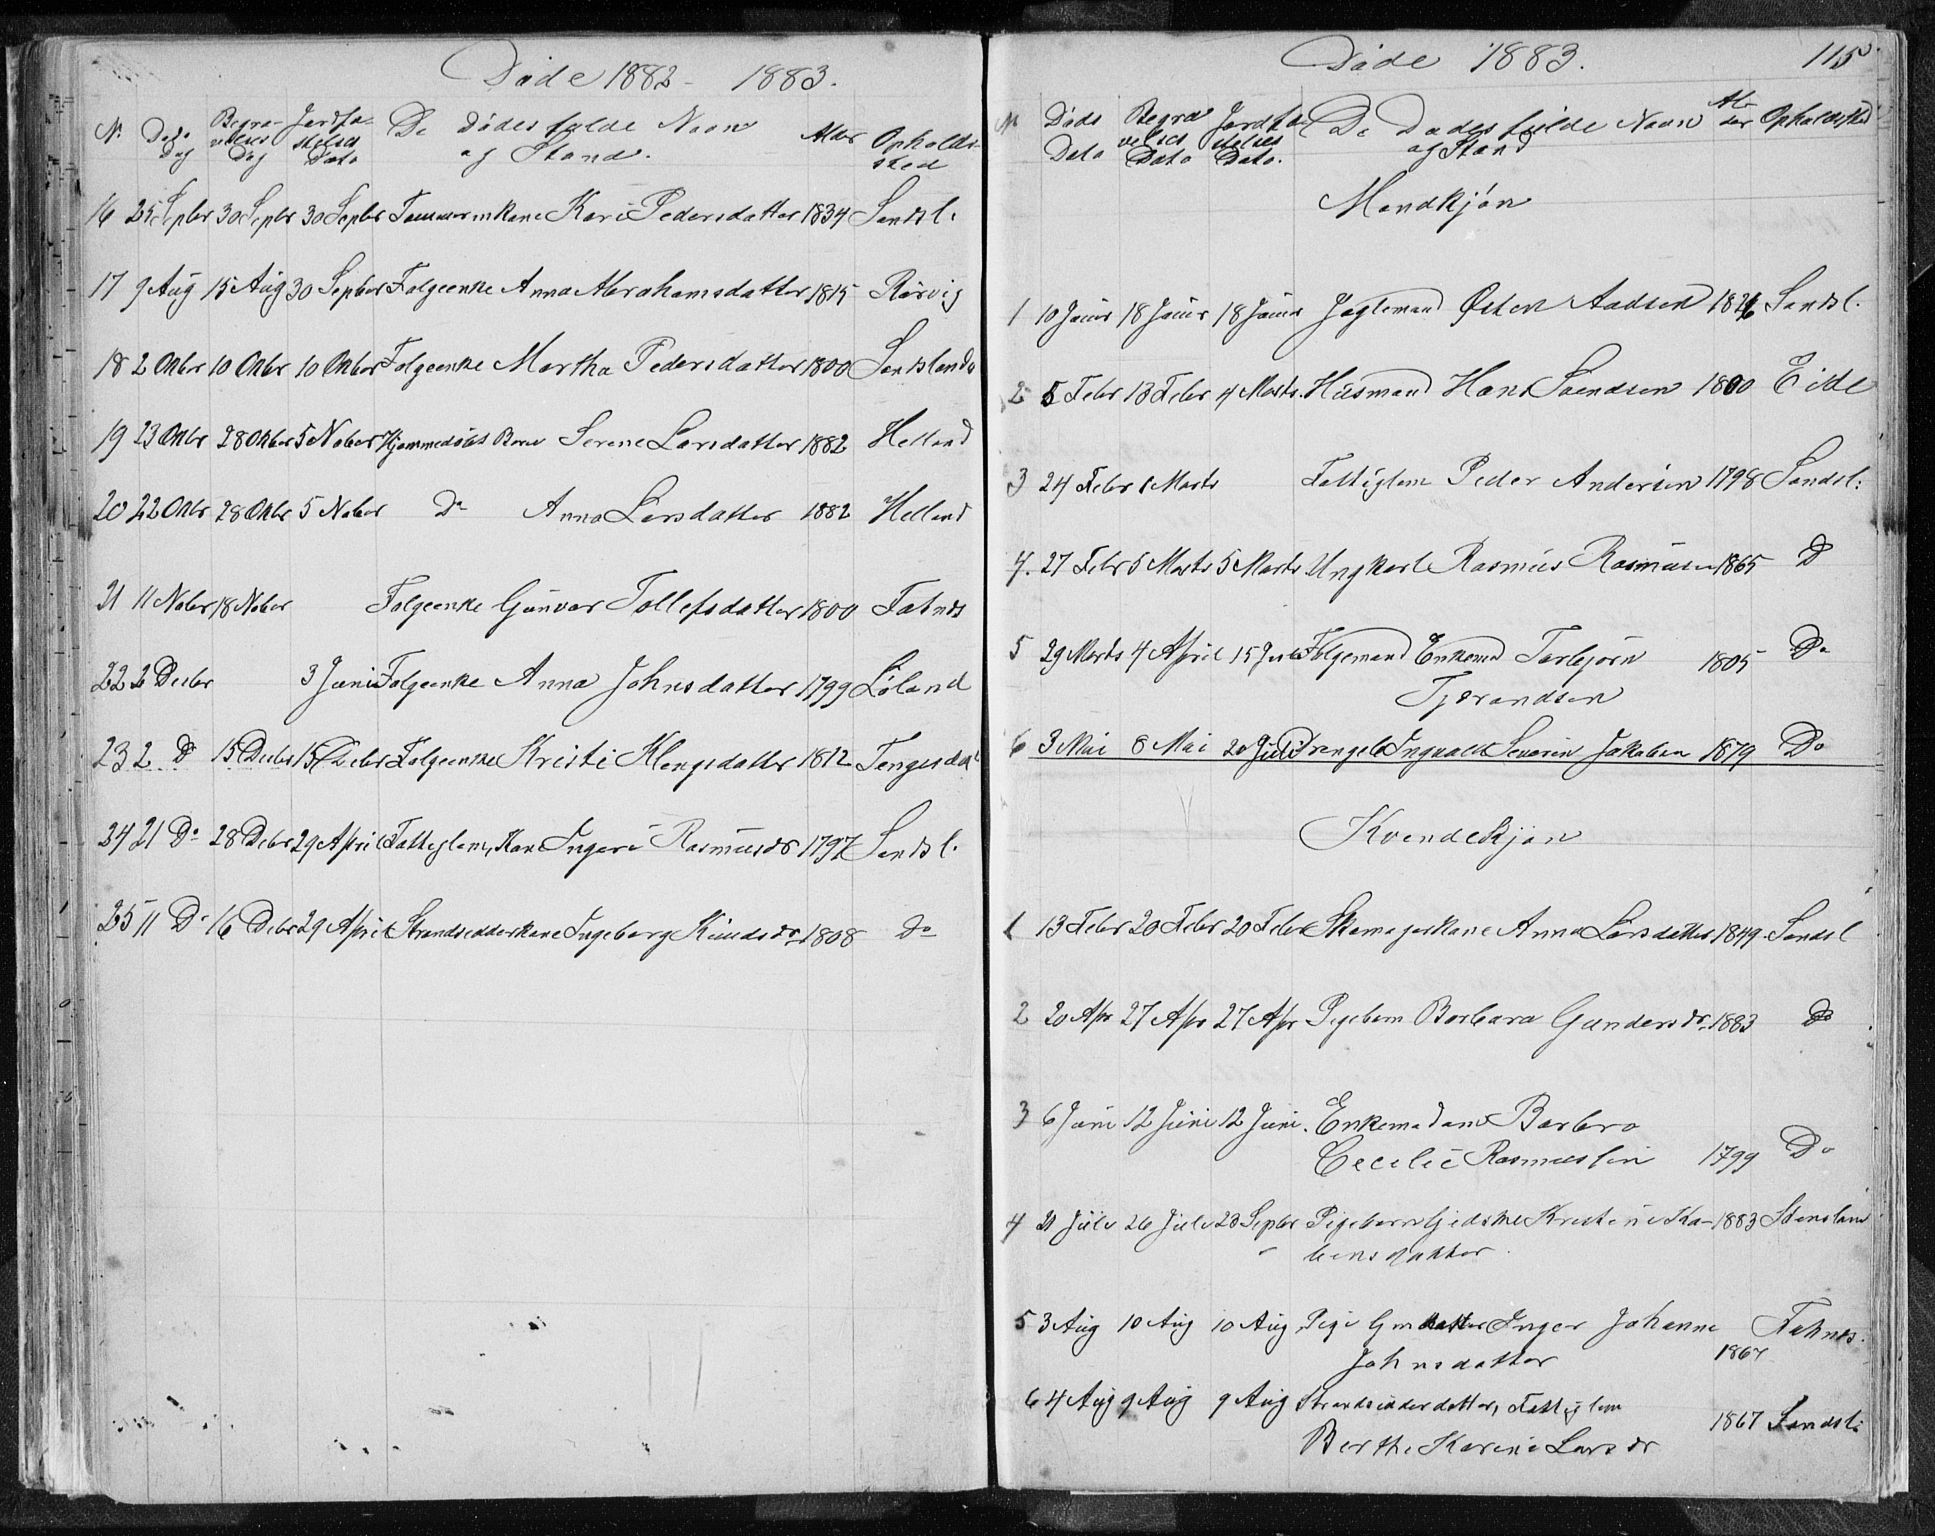 Døde 1882 - 1883.
N. Døds Dag Begra- velses Dag Jordfæ- stelses Dato De Dødes fulde Navn og Stand. Alder Opholds- sted
16 25 Septbr 30 Septbr 30 Septbr Tømmermkone Kari Pedersdatter 1834 Sandsl.
17 9 Aug 15 Aug 30 Septber Folgeenke Anna Abrahamsdatter 1815 Rørvig
18 2 Oktbr 10 Oktbr 10 Oktber Folgeenke Martha Pedersdatter 1800 Sandsland
19 23 Oktbr 28 Oktber 5 Novber Hjemmedøbt Barn Serene Larsdatter 1882 Helland
20 22 Oktbr 28 Oktbr 5 Novber Do Anna Larsdatter 1882 Helland
21 11 Novber 18 Novber Folgeenke Gunvor Tollefsdatter 1800 Fatnes
22 2 Decbr 3 Juni Folgeenke Anna Johnsdatter 1799 Løland
23 2 Do 15 Decbr 15 Decbr Folgeenke Kristi Klengsdatter 1812 Tengesdal
24 21 Do 28 Decbr 29 April Fattiglem, Kone Ingeri Rasmusdr 1797 Sandsl.
25 11 Do 16 Decbr 29 April Strandsidderkone Ingeborg Knudsdr. 1808 Do
Døde 1883. 115
N. Døds Dato Begra- velses Dato Jordfæ- stelses Dato. De Dødes fulde Navn og Stand Al- der Opholdssted
Mandkjøn
1 10 Janr 18 Janr 18 Janr Jagtemand Østen Aadsen 1826 Sandsl.
2 5 Febr 13 Febr 4 Marts. Husmand Hans Svendsen 1800 Eide
3 24 Febr 1 Marts Fattiglem Peder Andersen 1798 Sandsl.
4. 27 Febr 5 Marts 5 Marts Ungkarl Rasmus Rasmusen 1865 Do
5 29 Marts 4 April 15 Juli Folgemand Enkemd Torbjørn 1805 Do
Tjerandsen
6 3 Mai 8 Mai 20 Juli Drengeb Ingvald Severin Jakobsen 1879 Do
Kvendekjøn
1 13 Febr 20 Febr 20 Febr Skomagerkone Anna Larsdatter 1849. Sandsl
2 20 Apr 27 Apr 27 Apr Pigebarn Barbara Gundersdr. 1883 Do
3 6 Juni 12 Juni 12 Juni. Enkemadame Barbro
Cecilie Rasmussen 1799 Do
4 21 Juli 26 Juli 23 Septbr Pigebarn Gjedske Kristine Ka- 1883 Stensland
bensdatter.
5 3 Aug 10 Aug 10 Aug Pige Gmdatter Inger Johanne Fatnes.
Johnsdatter 1867
6 4 Aug 9 Aug 9 Aug Strandsidderdatter, Fattiglem
Berthe Karine Larsdr 1867 Sandsl.